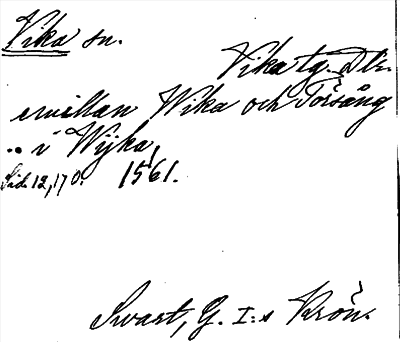 Vika sn.
Vika tg. Dlr.
emillan Wika och Torsång
.. i Wijka,
Sid. 12, 170. 1561.
Swart, G. I:s Krön.